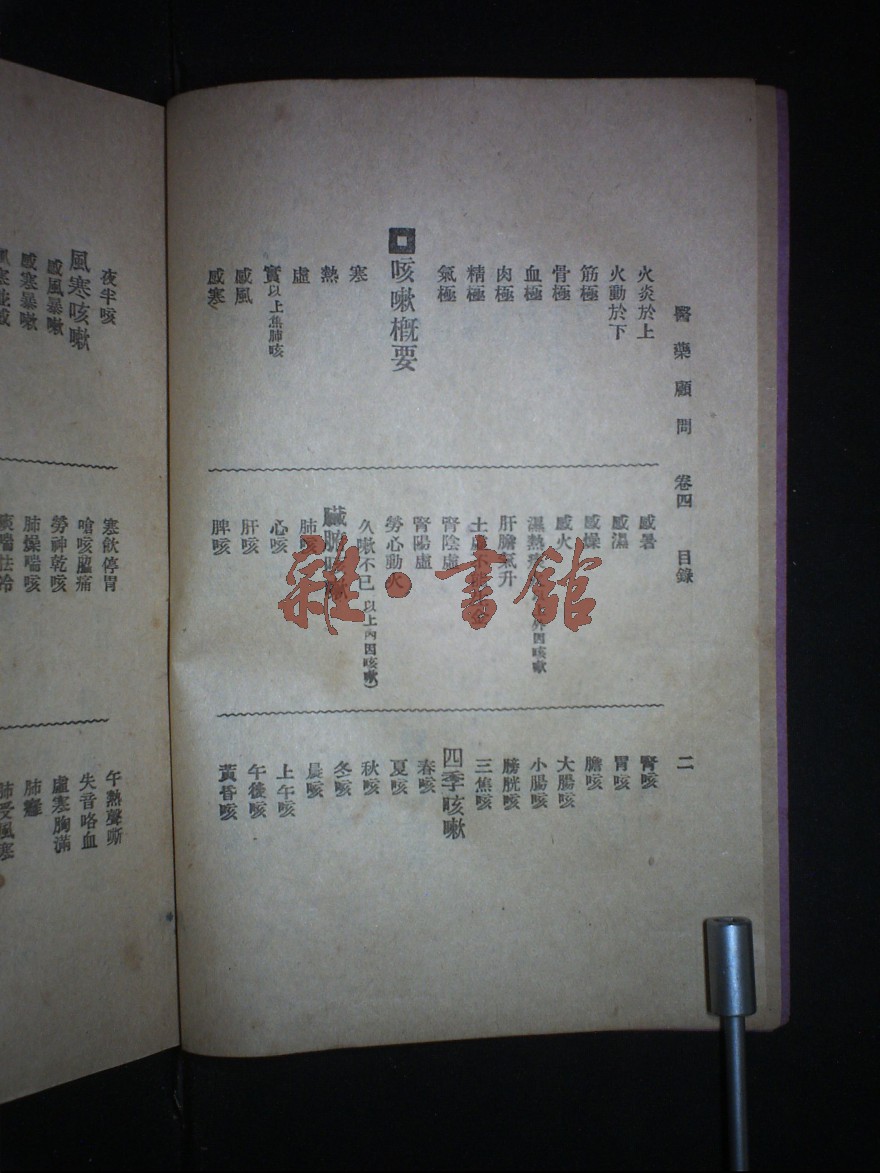 醫藥顧問 卷四 目錄 二
火炎於上
火動於下
筋極
骨極
血極
肉極
精極
氣極
咳嗽概要
寒
熱
虛
實以上焦肺咳
感風
感寒
感暑
感濕
感燥
感火
濕熱 外因咳嗽
肝膽氣升
土虛不
腎陰虛
腎陽虛
勞心動火
久嗽不已(以上內因咳嗽)
臟腑咳嗽
肺咳
心咳
肝咳
脾咳
腎咳
胃咳
膽咳
大腸咳
小腸咳
膀胱咳
三焦咳
四季咳嗽
春咳
夏咳
秋咳
冬咳
晨咳
上午咳
午後咳
黃昏咳
夜半咳
風寒咳嗽
感風暴嗽
感寒暴嗽
寒飲停胃
嗆咳脇痛
勞神乾咳
肺燥喘咳
午熱聲嘶
失音咯血
虛寒胸滿
肺癰
肺受風寒
雜·書館